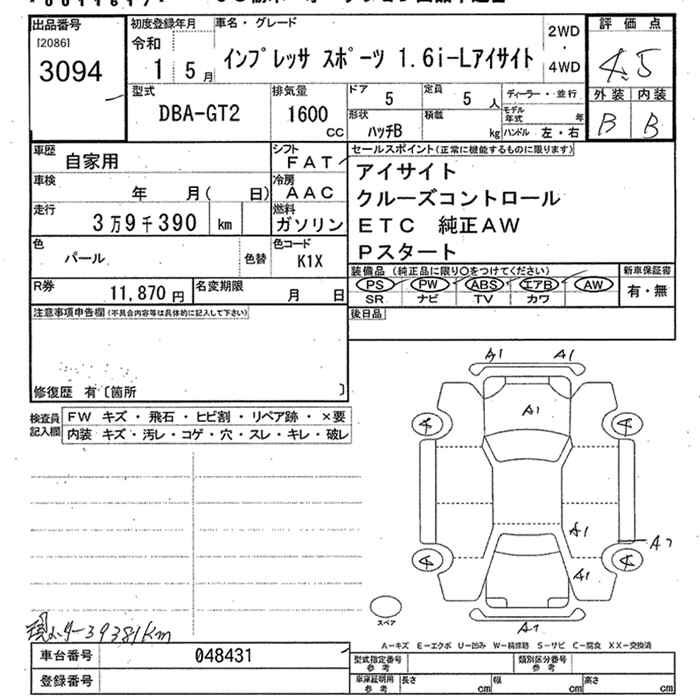 出品番号
[2086]
3094
初度登録年月
令和
1 5月
車名・グレード
インプレッサ スポーツ 1.6i-Lアイサイト
2WD
・
4WD
評価点
4.5
外装 内装
B B
型式
DBA-GT2
排気量
1600
CC
ドア
5
定員
5 人
形状
ハッチB
積載
kg
ディーラー・並行
モデル年式 年
ハンドル 左・右
車歴
自家用
シフト
FAT
車検
年 月( 日)
冷房
AAC
走行
3万9千390 km
燃料
ガソリン
色
パール
色替
色コード
K1X
R券
11,870円
名変期限
月 日
セールスポイント(正常に機能するものに限ります)
アイサイト
クルーズコントロール
ETC 純正AW
Pスタート
装備品(純正品に限り○をつけてください)
PS PW ABS エアB AW
SR ナビ TV カワ
新車保証書
有・無
後日品
注意事項申告欄(不具合内容等は具体的に記入して下さい)
修復歴 有〔箇所 〕
検査員記入欄
FW キズ・飛石・ヒビ割・リペア跡・×要
内装 キズ・汚レ・コゲ・穴・スレ・キレ・破レ
A1 A1
A1
A1
A2
A1
A1
スペア
A-キズ E-エクボ U-凹み W-補修跡 S-サビ C-腐食 XX-交換済
現メーター39381Km
車台番号
048431
登録番号
型式指定番号
参考
類別区分番号
参考
車庫証明用
参考
長さ cm
幅 cm
高さ cm